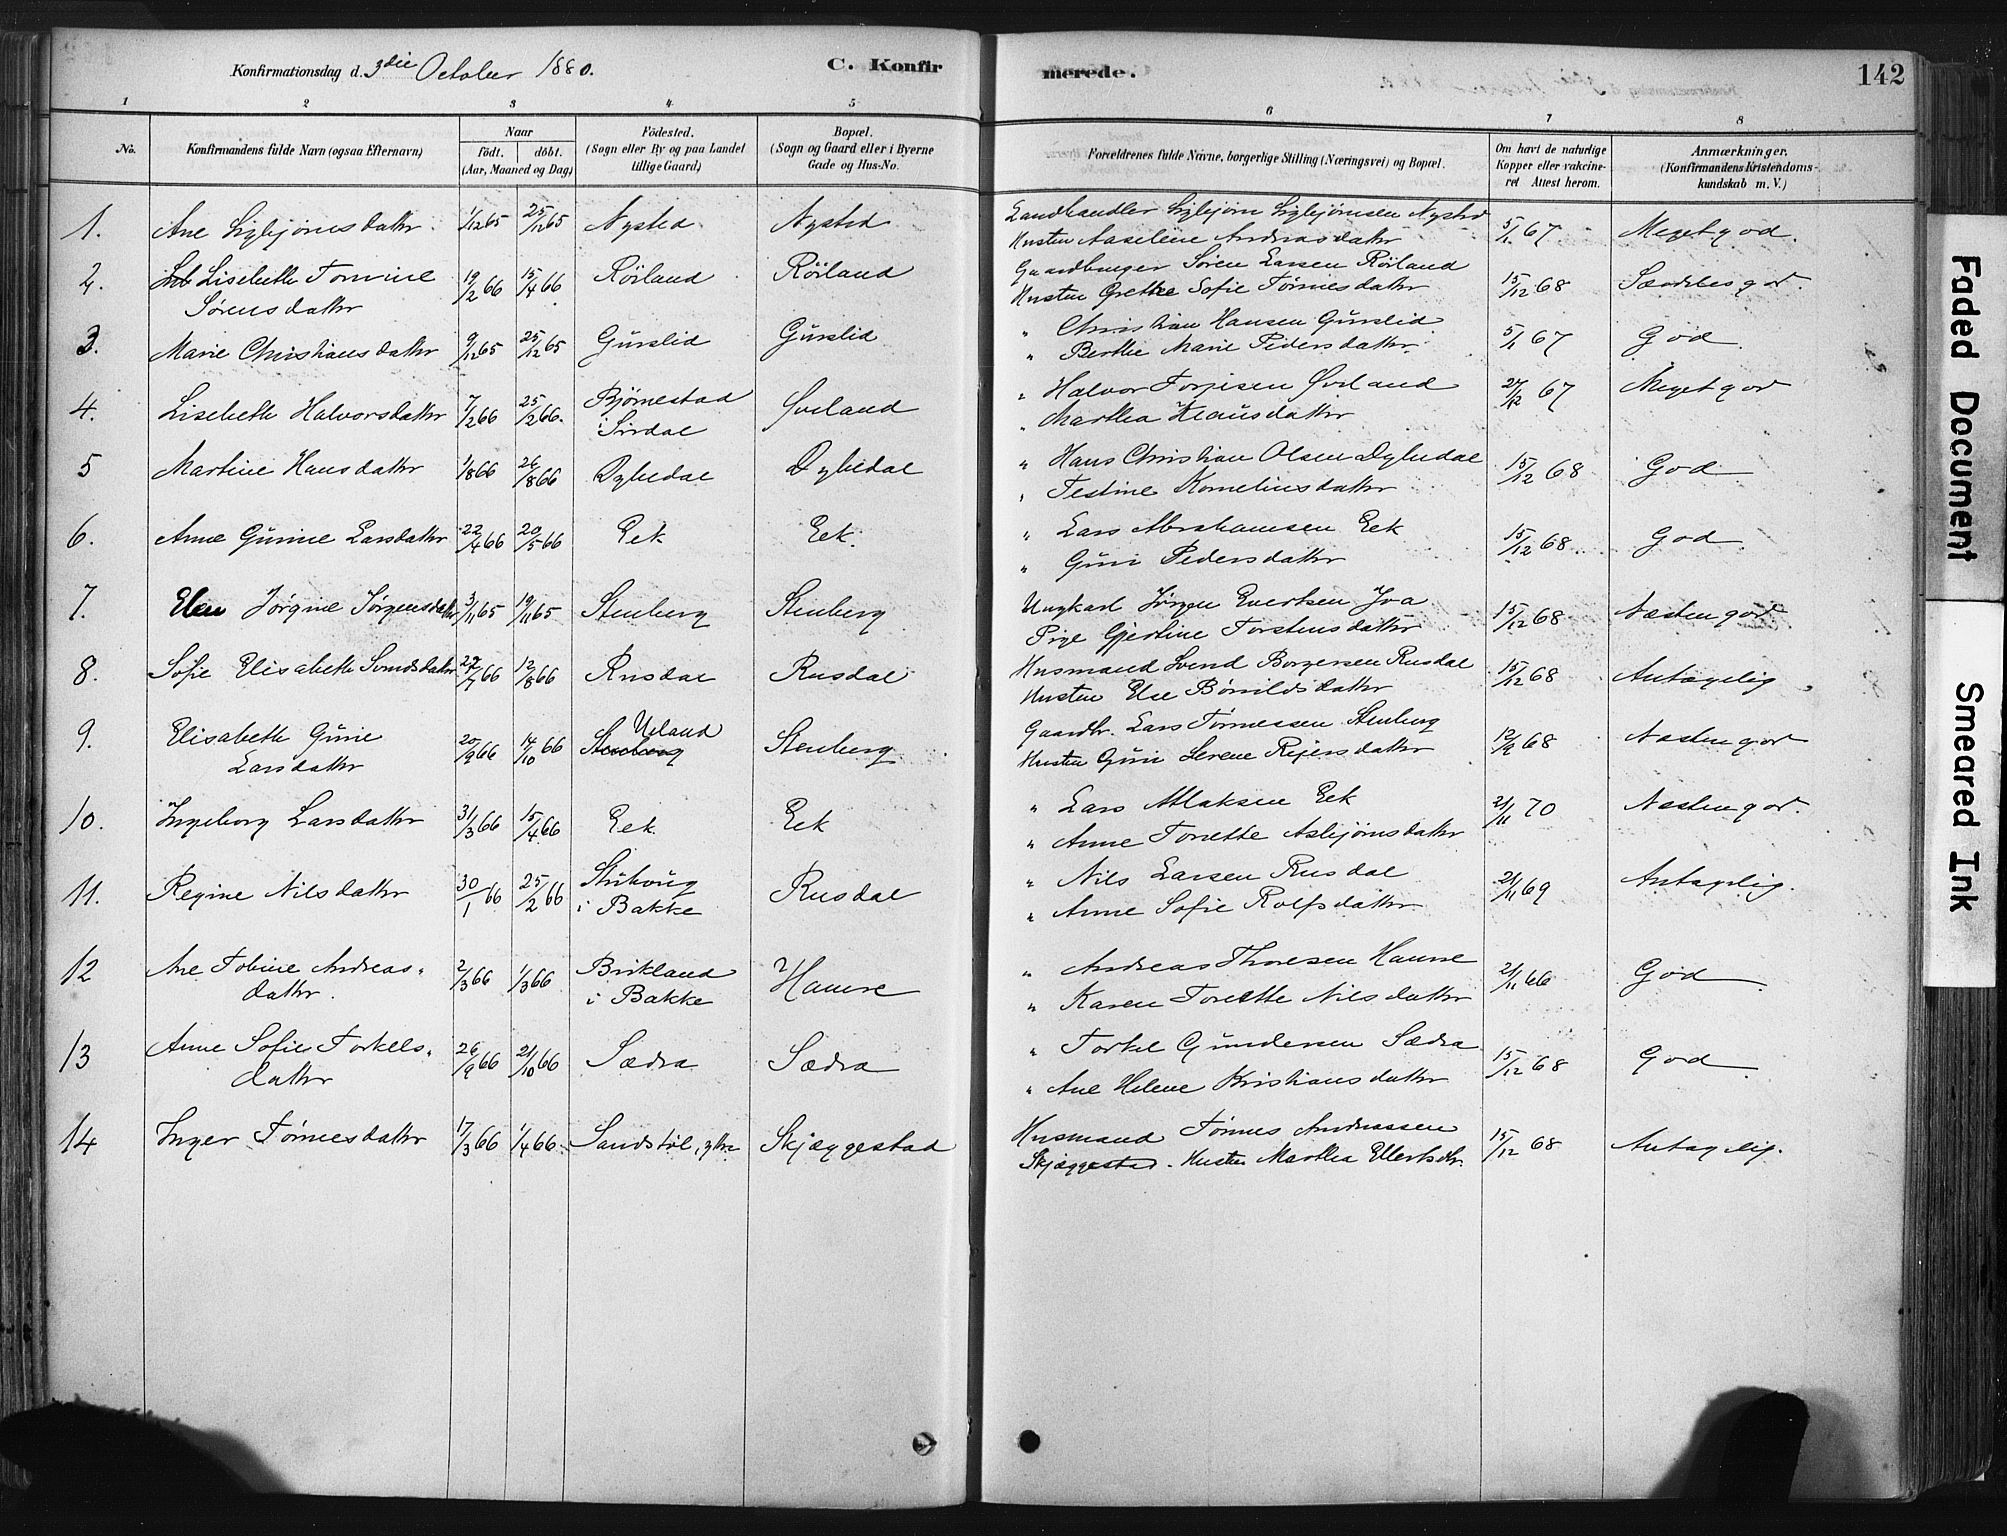 Konfirmationsdag d. 3die October 1880.
C. Konfir
merede.
142
1 2 3 4 5 6 7 8
No.
Konfirmandens fulde Navn (ogsaa Efternavn)
Naar
födt. döbt.
(Aar, Maaned og Dag)
Födested.
(Sogn eller By og paa Landet
tillige Gaard)
Bopæl.
(Sogn og Gaard eller i Byerne
Gade og Hus-No.
Forældrenes fulde Navne, borgerlige Stilling (Næringsvei) og Bopæl.
Om havt de naturlige
Kopper eller vakcine-
ret Attest herom.
Anmærkninger.
(Konfirmandens Kristendoms-
kundskab m. V.)
1. Ane Sigbjørnsdatter 1/12 65 25/12 65 Nysted Nysted
Landhandler Sigbjørn Sigbjørnsen Nysted
Husteu Aaseline Andreasdatter 5/1 67 Meget god.
2. Lisebeth Tomine 19/2 66 15/4 66 Röiland Röiland
Sørensdatter
Gaardbruger Sören Larsen Röiland
Husteu Grethe Sofie Tönnesdatter 15/12 68 Særdeles god.
3. Marie Christiansdatter 9/12 65 25/12 65 Gurslid Gurslid
" Christian Hansen Gurslid
" Berthe Marie Pedersdatter 5/1 67 God
4. Lisebeth Halvorsdatter 7/2 66 25/2 66. Bjørnestad Øveland
i Sirdal
" Halvor Torjesen Øveland
" Martha Klausdatter 27/12 67 Meget god
5 Martine Hansdatter 1/8 66 26/8 66 Dybedal Dybedal
" Hans Christian Olsen Dybedal
" Testine Korneliusdatter 15/12 68 God
6. Anne Gurine Larsdatter 22/4 66 20/5 66 Eek Eek.
" Lars Abrahamsen Eek
" Guri Pedersdatter 15/12 68. God.
7. Elen Jörgine Jørgensdatter 3/11 65 19/11 65 Stenberg Stenberg
Ungkarl Jörgen Evertsen Joa
Pige Gjertine Torstensdatter 15/12 68 Næsten god
8. Sofie Elisabeth Svendsdatter 27/7 66 12/8 66 Rusdal Rusdal
Husmand Svend Borgersen Rusdal
Husteu Else Bönildsdatter 15/12 68 Antagelig
9. Elisabeth Gurie 20/9 66 14/10 66 Ueland Stenberg
Larsdatter Stenberg
Gaardbr. Lars Tönnessen Stenberg
Husteu Guri Serene Rejersdatter 12/9 68 Næsten god
10. Ingeborg Larsdatter 31/3 66 15/4 66 Eek Eek
" Lars Atlaksen Eek
" Anne Tonette Asbjörnsdatter 21/11 70 Næsten god.
11. Regine Nilsdatter 30/1 66 25/2 66 Stuhoug Rusdal
i Bakke
" Nils Larsen Rusdal
" Anne Sofie Rolfsdatter 21/11 69 Antagelig.
12 Ane Tobine Andreas- 2/3 66 1/3 66 Birkland Hamre
datter. i Bakke
" Andreas Thoresen Hamre
" Karen Tonette Nilsdatter 21/11 66 God
13 Anne Sofie Torkels- 26/9 66 21/10 66 Sædra Sædra
datter
" Torkel Gundersen Sædra
" Ane Helene Kristiansdatter 15/12 68 God
14 Inger Tönnesdatter 17/3 66 1/4 66 Sandstöl, ytre Skjæggestad
Husmand Tönnes Andreassen
Skjæggestad. Husteu Martha Ellertsdtr. 15/12 68 Antagelig.
Faded Document
Smeared Ink